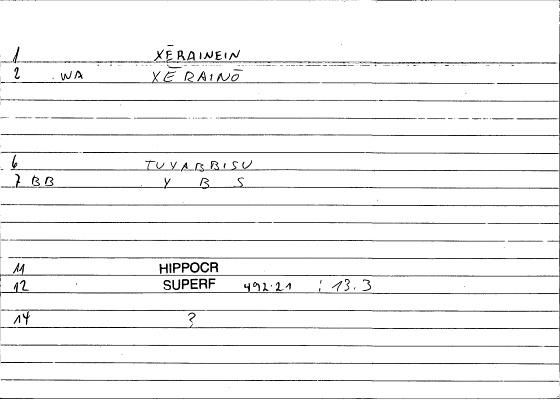 1 XĒRAINEIN
2 WA XĒRAINŌ
6 TUYABBISU
7 BB Y B S
11 HIPPOCR
12 SUPERF 492.21 : 13.3
14 ?